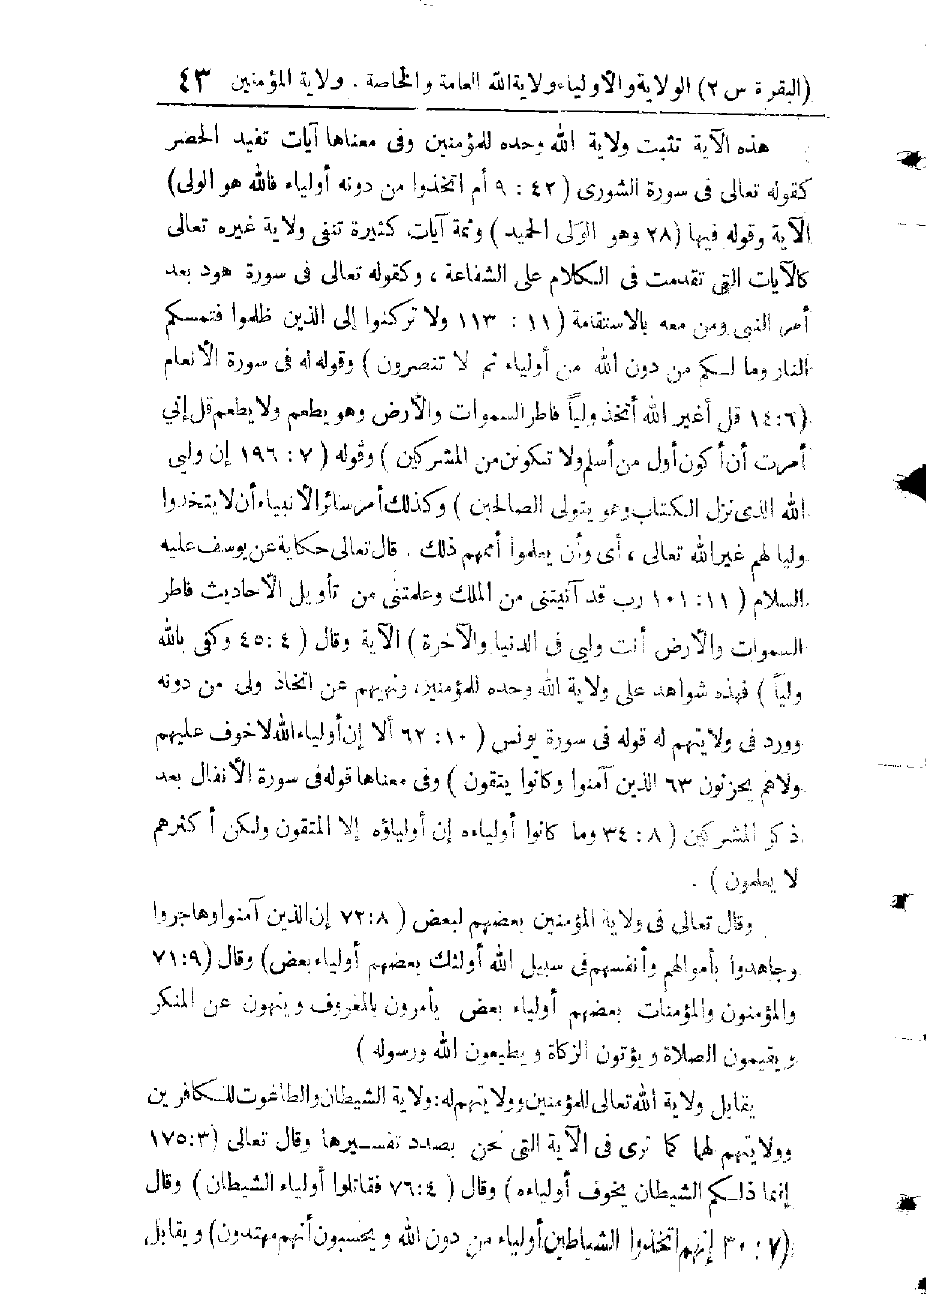 (البقرة س ٢) الولاية والأولياء ولاية الله العامة والخاصة . ولاية المؤمنين ٤٣
هذه الآية تثبت ولاية الله وحده للمؤمنين وفى معناها آيات تفيد الحصر
كقوله تعالى فى سورة الشورى ( ٤٢ : ٩ أم اتخذوا من دونه أولياء فالله هو الولى)
الآية وقوله فيها (٢٨ وهو الولى الحميد ) وثمة آيات كثيرة تنفى ولاية غيره تعالى
كالآيات التى تقدمت فى الكلام على الشفاعة ، وكقوله تعالى فى سورة هود بعد
أمر النبى ومن معه بالاستقامة ( ١١ : ١١٣ ولا تركنوا إلى الذين ظلموا فتمسكم
النار وما لكم من دون الله من أولياء ثم لا تنصرون ) وقوله له فى سورة الأنعام
(١٤:٦ قل أغير الله أتخذ ولياً فاطر السموات والأرض وهو يطعم ولا يطعم قل إني
أمرت أن أكون أول من أسلم ولا تكونن من المشركين ) وقوله ( ٧ : ١٩٦ إن وليى
الله الذى نزل الكتاب وهو يتولى الصالحين ) وكذلك أمر سائر الأنبياء أن لا يتخذوا
وليا لهم غير الله تعالى ، أى وأن يعلموا أممهم ذلك . قال تعالى حكاية عن يوسف عليه
السلام ( ١١ : ١٠١ رب قد آتيتنى من الملك وعلمتنى من تأويل الأحاديث فاطر
السموات والأرض أنت وليى فى الدنيا والآخرة ) الآية وقال ( ٤ : ٤٥ وكفى بالله
ولياً ) فهذه شواهد على ولاية الله وحده للمؤمنين، ونهيهم عن اتخاذ ولى من دونه
وورد فى ولايتهم له قوله فى سورة يونس ( ١٠ : ٦٢ ألا إن أولياء الله لا خوف عليهم
ولاهم يحزنون ٦٣ الذين آمنوا وكانوا يتقون ) وفى معناها قوله فى سورة الأنفال بعد
ذكر المشركين ( ٨ : ٣٤ وما كانوا أولياءه إن أولياؤه إلا المتقون ولكن أكثرهم
لا يعلمون ) .
وقال تعالى فى ولاية المؤمنين بعضهم لبعض ( ٧٢:٨ إن الذين آمنوا وهاجروا
وجاهدوا بأموالهم وأنفسهم فى سبيل الله أولئك بعضهم أولياء بعض) وقال (٧١:٩
والمؤمنون والمؤمنات بعضهم أولياء بعض يأمرون بالمعروف وينهون عن المنكر
ويقيمون الصلاة ويؤتون الزكاة ويطيعون الله ورسوله )
يقابل ولاية الله تعالى للمؤمنين وولايتهم له: ولاية الشيطان والطاغوت للكافرين
وولايتهم لهما كما ترى فى الآية التى نحن بصدد تفسيرها وقال تعالى (١٧٥:٣
إنما ذلكم الشيطان يخوف أولياءه) وقال ( ٧٦:٤ فقاتلوا أولياء الشيطان ) وقال
(٧ : ٣٠ إنهم اتخذوا الشياطين أولياء من دون الله ويحسبون أنهم مهتدون) ويقابل